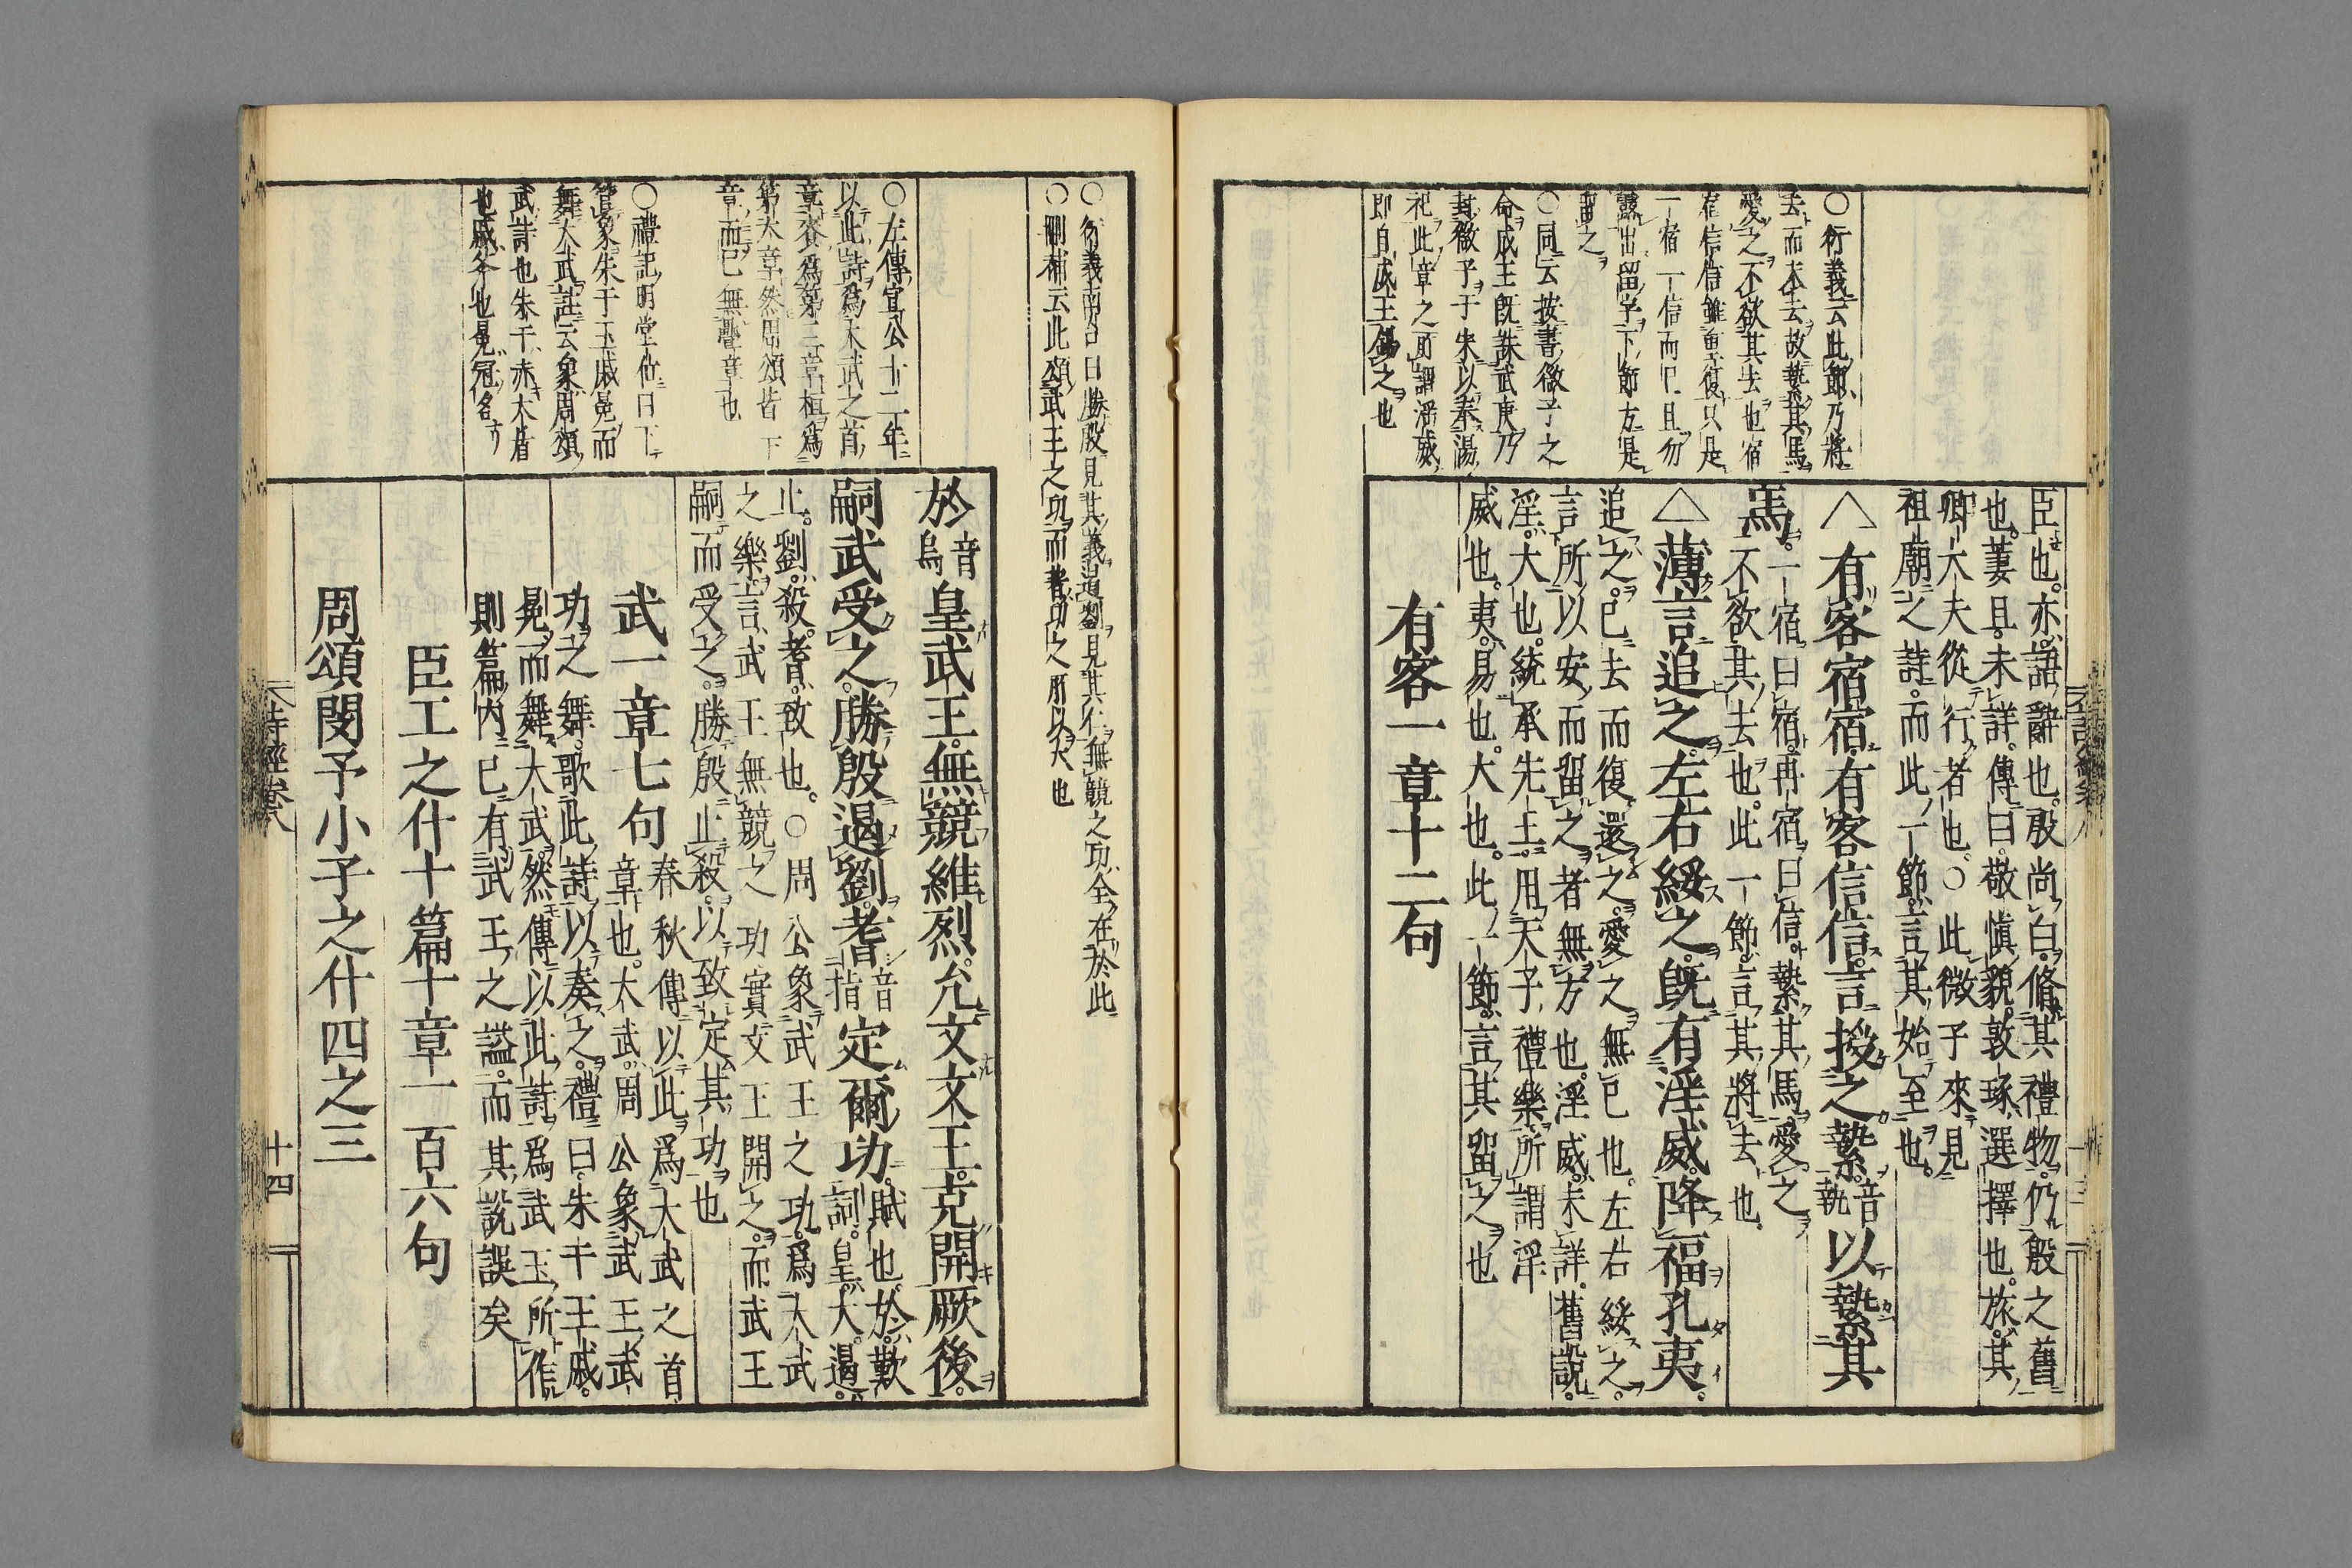 ○衍義云此節乃將
去而未去故縶其馬
愛之不欲其去也宿
宿信信雖重復只是
一宿一信而已且勿
露出留字下節方是
留之
○同云按書微子之
命成王既誅武庚乃
封微子于宋以奉湯
祀此章之所謂淫威
即自成王錫之也
臣也。亦、語辭也。殷尚白。脩其禮物。仍殷之舊
也。萋且。未詳。傳曰。敬愼貌。敦琢、選擇也。旅。其
卿大夫從行者也。○此微子來見
祖廟之詩。而此一節。言其始至也。
△有客宿宿。有客信信。言授之縶。音執以縶其
馬。一宿曰宿。再宿曰信。縶其馬。愛之
不欲其去也。此一節。言其將去也
△薄言追之。左右綏之。既有淫威。降福孔夷。
追之。已去而復還之。愛之無已也。左右綏之。
言所以安而留之者無方也。淫威。未詳。舊說。
淫。大也。統承先王。用天子禮樂。所謂淫
威也。夷。易也。大也。此一節。言其留之也
有客一章十二句
○衍義南台曰勝殷見其義遏劉見其仁無競之功全在於此
○刪補云此頌武王之功而耆功之所以大也
○左傳宣公十二年
以此詩爲大武之首
章賚爲第三章桓爲
第六章然周頌皆下
章而已無疊章也
○禮記明堂位曰下
管象朱干玉戚冕而
舞大武註云象周頌
武詩也朱干赤大盾
也戚斧也冕冠名
於音烏皇武王。無競維烈。允文文王。克開厥後。
嗣武受之。勝殷遏劉。耆音指定爾功。賦也。於。歎
詞。皇。大。遏。
止。劉。殺。耆。致也。○周公象武王之功。爲大武
之樂。言武王無競之功。實文王開之。而武王
嗣而受之。勝殷止殺。以致定其功也
武一章七句
春秋傳以此爲大武之首
章也。大武。周公象武王武
功之舞。歌此詩以奏之。禮曰。朱干玉戚。
冕而舞大武。然傳以此詩爲武王所作。
則篇內已有武王之諡。而其說誤矣
臣工之什十篇十章一百六句
周頌閔予小子之什四之三
詩經卷八
十四